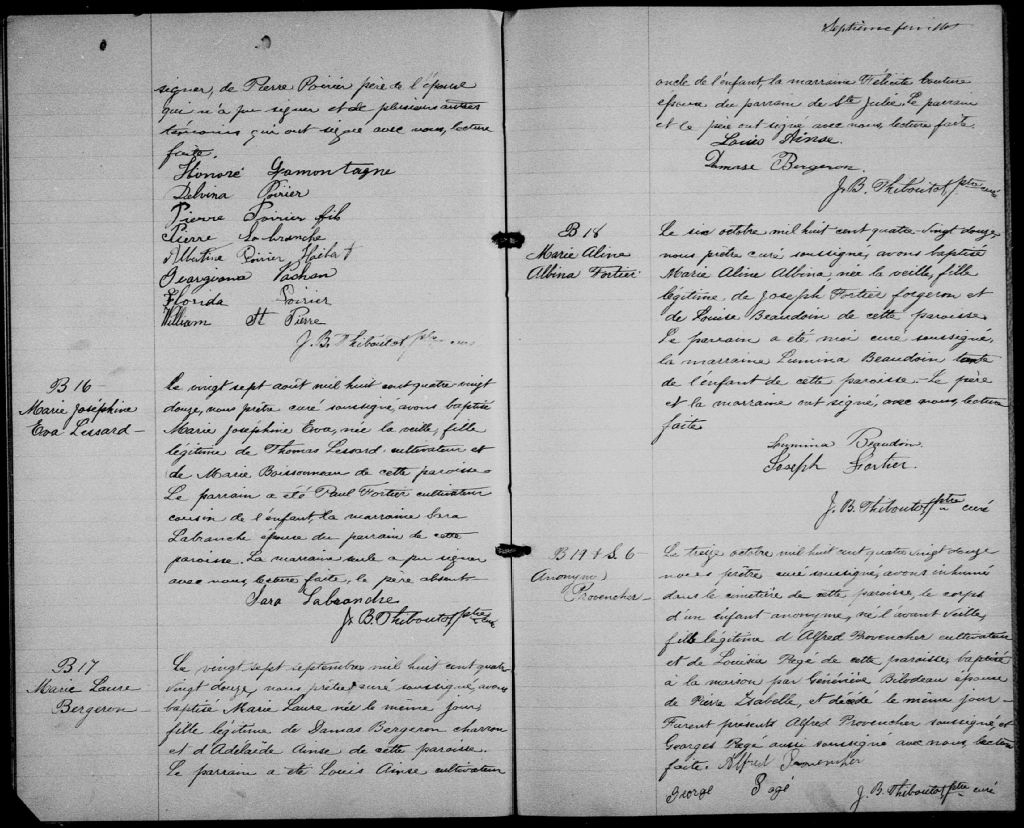 signer, de Pierre Poirier père de l'épouse
qui n'a pu signer et de plusieurs autres
témoins qui ont signé avec nous, lecture
faite.
Honoré Gamontagne
Delvina Poirier
Pierre Poirier fils
Pierre Labranche
Albertine Poirier
Georgiana Vachan
Florida Poirier
William St Pierre
J. B. Thiboutot ptre curé
B 16
Marie Joséphine
Eva Lessard
Le vingt sept août mil huit cent quatre vingt
douze, nous prêtre curé soussigné, avons baptisé
Marie Josephine Eva, née la veille, fille
légitime de Thomas Lessard cultivateur et
de Marie Boissonneau de cette paroisse
Le parrain a été Paul Fortier cultivateur
cousin de l'enfant, la marraine Sara
Labranche épouse du parrain de cette
paroisse. La marraine seule a pu signer
avec nous, lecture faite, le père absent
Sara Labranche
J. B. Thiboutot ptre curé
B 17
Marie Laure
Bergeron
Le vingt sept septembre mil huit cent quatre
vingt douze, nous prêtre curé soussigné, avons
baptisé Marie Laure née le même jour,
fille légitime de Damas Bergeron charron
et d'Adelaide Ainse de cette paroisse.
Le parrain a été Louis Ainse cultivateur
Septième feuillet
oncle de l'enfant, la marraine Félicité Couture
épouse du parrain de Ste Julie. Le parrain
et le père ont signé avec nous, lecture faite.
Louis Ainse.
Damase Bergeron.
J. B. Thiboutot ptre curé
B 18
Marie Aline
Albina Fortier
Le six octobre mil huit cent quatre-vingt douze,
nous, prêtre curé soussigné, avons baptisé
Marie Aline Albina, née la veille, fille
légitime, de Joseph Fortier forgeron et
de Louise Beaudoin de cette paroisse
Le parrain a été moi curé soussigné,
la marraine Lumina Beaudoin tante
de l'enfant de cette paroisse. Le père
et la marraine ont signé, avec nous, lecture
faite
Loumina Beaudoin.
Joseph Fortier.
J. B. Thiboutot ptre curé
B 19 & S. 6
Anonyme
Provencher
Le treize octobre mil huit cent quatre vingt douze
nous prêtre curé soussigné, avons inhumé
dans le cimetière de cette paroisse, le corps
d'un enfant anonyme, né l'avant veille,
fille légitime d'Alfred Provencher cultivateur
et de Louisia Pagé de cette paroisse, baptisé
à la maison par Généviève Bilodeau épouse
de Pierre Isabelle, et décédé le même jour
Furent présents Alfred Provencher soussigné et
Georges Pagé aussi soussigné avec nous, lecture
faite. Alfred Provencher
George Pagé
J. B. Thiboutot ptre curé